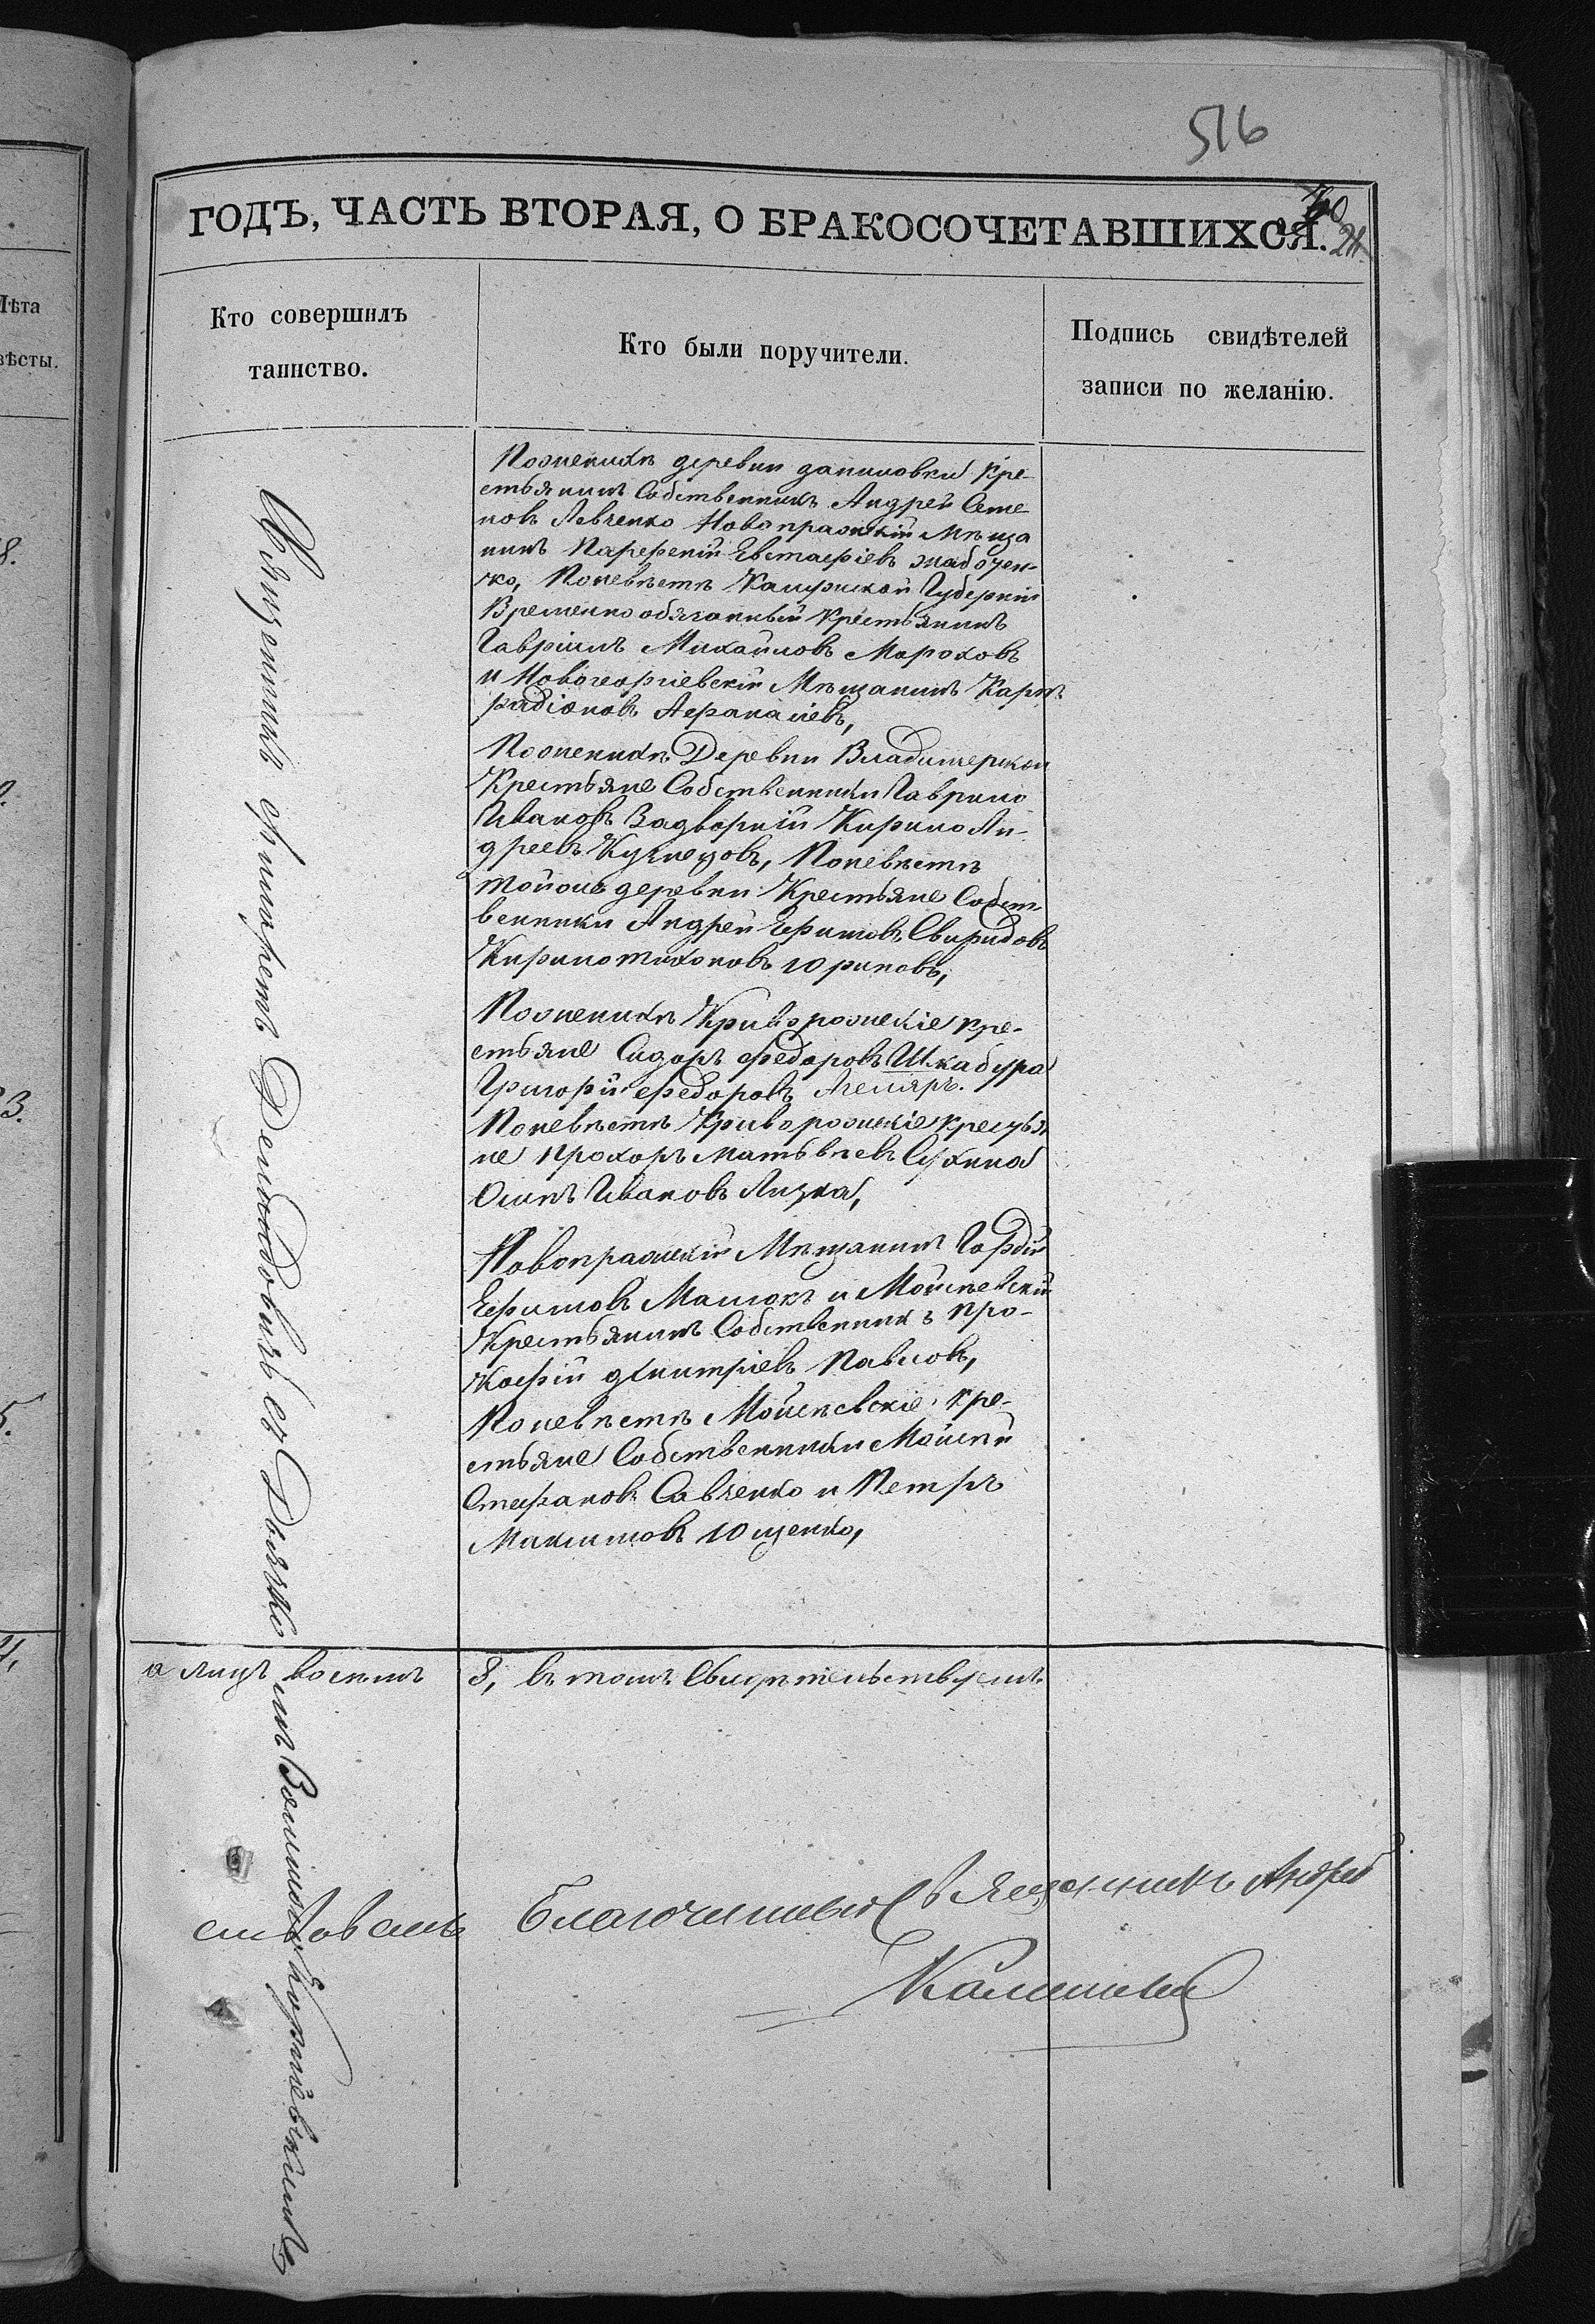 516
ГОДЪ, ЧАСТЬ ВТОРАЯ, О БРАКОСОЧЕТАВШИХСЯ.
Кто совершилъ
таинство.
Кто были поручители.
Подпись свидѣтелей
записи по желанію.
Лѣта
вѣсты.
8.
3.
5.
4,
Священникъ Димитрій съ Дьячко
мъ
Пожениху деревни Даниловки кре-
стьянинъ Собственникъ Андрей Семе
новъ Левченко Новопражскій Мѣща
нинъ Парфеній Евстафіевъ
ко, Поневѣстѣ Калужской Губерніи
Временно обязанный Крестьянинъ
Гавріилъ Михайловъ Мароховъ
и Новогеоргіевскій Мѣщанинъ Карпъ
радіоновъ Афанасіевъ,
Пожениху Деревни Владимерской
Крестьяне Собственники Гаврило
Ивановъ Задворній Кирило Ан-
дреевъ Кузнецовъ, Поневѣстѣ
тойже деревни Крестьяне Собст
венники Андрей Ефимовъ Свиридовъ
Кирило тихоновъ Юриновъ,
Пожениху Криворожскіе кре-
стьяне Сидоръ Федоровъ Шкабура
Григорій Федоровъ
Поневѣстѣ Криворожскіе крестья
не Прохоръ Матвѣевъ Сухина
Осипъ Ивановъ Лизка,
Новопражскій Мѣщанинъ Гордій
Ефимовъ Малюкъ и Мойсѣевскій
Крестьянинъ Собственникъ Про-
кофій Дмитріевъ Павловъ,
Поневѣстѣ Мойсѣевскіе кре-
стьяне Собственники Мойсѣй
Стефановъ Савченко и Петръ
Максимовъ Ющенко,
а лицъ восемь 8, въ томъ Свидѣтельствуемъ
Благочинный Священникъ Андрей